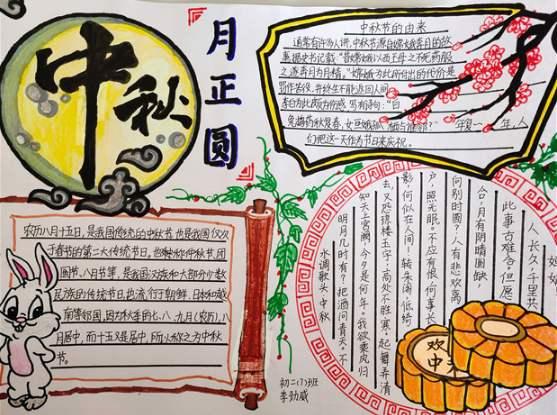 中秋
月正圆
中秋节的由来
通常有许多人讲,中秋节源自嫦娥奔月的故
事。据史书记载:"昔嫦娥以西王母之不死药服
之,遂奔月为月精。"嫦娥为此所付出的代价是
罚作苦役,并终生不能返回人间
李白为此颇为伤感,写有诗句:"白
兔捣药秋复春,
们把这一天作为节日来庆祝。
农历八月十五日,是我国传统的中秋节,也是我国仅次
于春节的第二大传统节日。
圆节、八月节等,是我国汉族和大部分少数
民族的传统节日,也流行于朝鲜、日本和越
南等邻国。因为秋季的七、八、九月(农历),八
月居中,而十五又是居中,所以称之为中秋
节。
水调歌头 中秋
明月几时有?把酒问青天。不
知天上宫阙,今夕是何年。我欲乘风归
去,又恐琼楼玉宇,高处不胜寒。起舞弄清
影,何似在人间!转朱阁,低绮
户,照无眠。不应有恨,何事长
向别时圆?人有悲欢离
合,月有阴晴圆缺,
此事古难全。但愿
人长久,千里共
欢
中
初二(7)班
李劲威